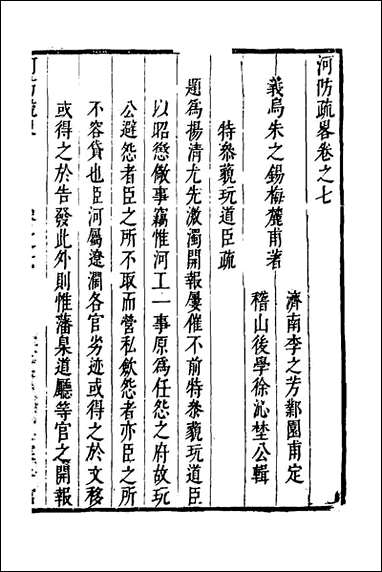 河防疏畧卷之七
濟南李之芳鄴園甫定
義烏朱之錫梅麓甫著
稽山後學徐沁埜公輯
特叅藐玩道臣疏
題爲揚清尤先激濁開報屢催不前特叅藐玩道臣
以昭懲儆事竊惟河工一事原爲任怨之府故玩
公避怨者臣之所不取而營私歛怨者亦臣之所
不容貸也臣河屬遼濶各官劣迹或得之於文移
或得之於告發此外則惟藩臬道廳等官之開報